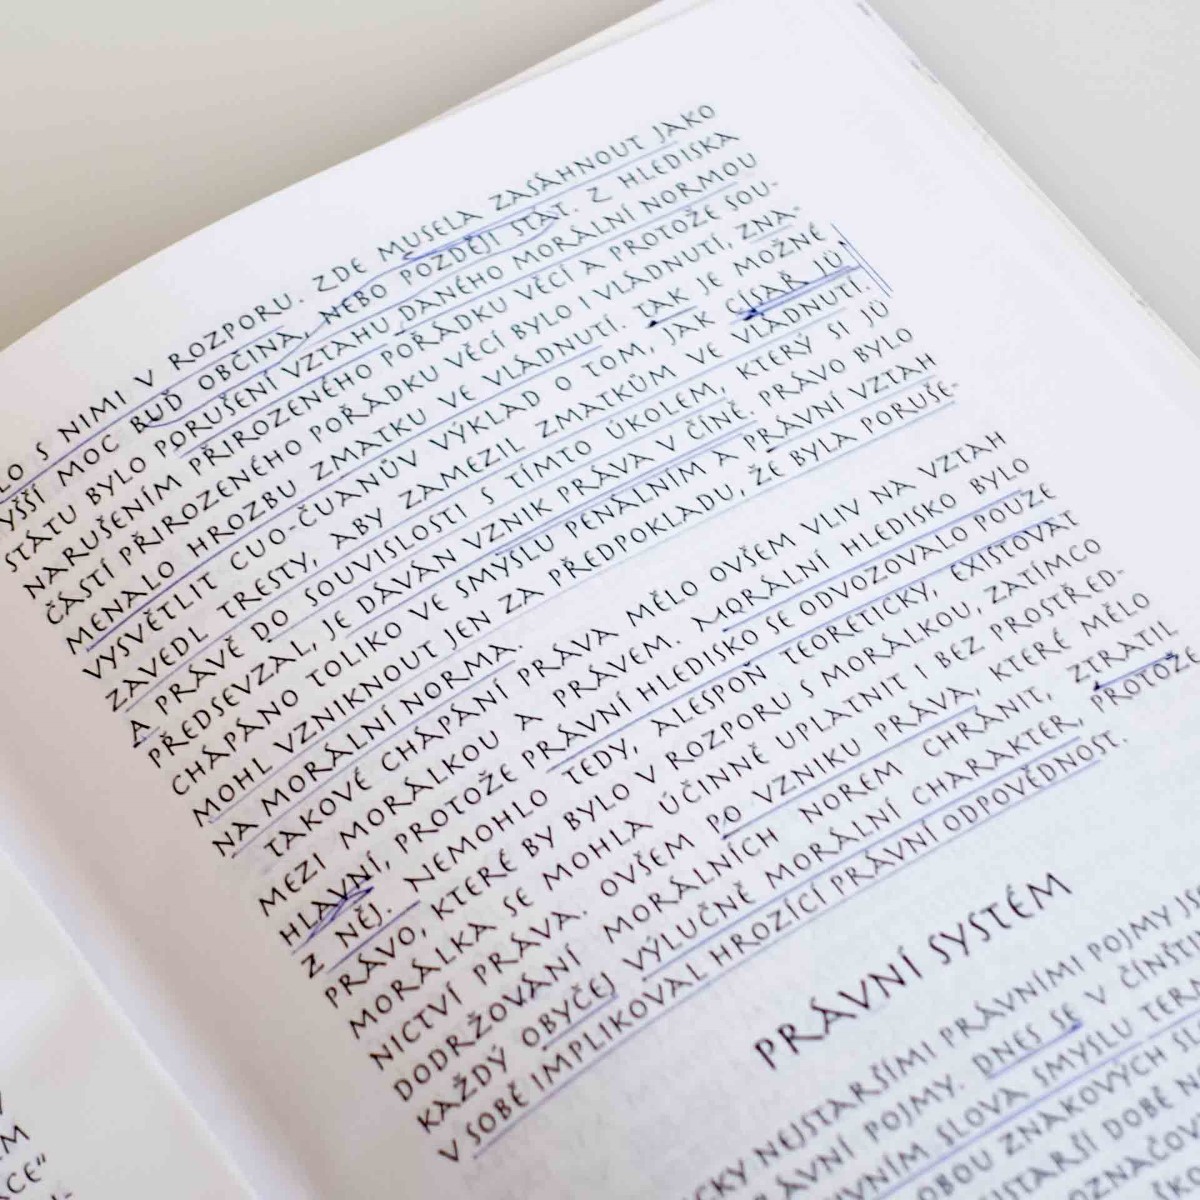 LO S NIMI V ROZPORU. ZDE MUSELA ZASÁHNOUT JAKO
YŠŠÍ MOC BUĎ OBČINA, NEBO POZDĚJI STÁT. Z HLEDISKA
STÁTU BYLO PORUŠENÍ VZTAHU DANÉHO MORÁLNÍ NORMOU
NARUŠENÍM PŘIROZENÉHO POŘÁDKU VĚCÍ A PROTOŽE SOU-
ČÁSTÍ PŘIROZENÉHO POŘÁDKU VĚCÍ BYLO I VLÁDNUTÍ, ZNA-
MENALO HROZBU ZMATKU VE VLÁDNUTÍ. TAK JE MOŽNÉ
VYSVĚTLIT CUO-ČUANŮV VÝKLAD O TOM, JAK CÍSAŘ JÜ,
ZAVEDL TRESTY, ABY ZAMEZIL ZMATKŮM VE VLÁDNUTÍ.
A PRÁVĚ DO SOUVISLOSTI S TÍMTO ÚKOLEM, KTERÝ SI JÜ
PŘEDSEVZAL, JE DÁVÁN VZNIK PRÁVA V ČÍNĚ. PRÁVO BYLO
CHÁPÁNO TOLIKO VE SMYSLU PENÁLNÍM A PRÁVNÍ VZTAH
MOHL VZNIKNOUT JEN ZA PŘEDPOKLADU, ŽE BYLA PORUŠE-
NA MORÁLNÍ NORMA.
TAKOVÉ CHÁPÁNÍ PRÁVA MĚLO OVŠEM VLIV NA VZTAH
MEZI MORÁLKOU A PRÁVEM. MORÁLNÍ HLEDISKO BYLO
HLAVNÍ, PROTOŽE PRÁVNÍ HLEDISKO SE ODVOZOVALO POUZE
Z NĚJ. NEMOHLO TEDY, ALESPOŇ TEORETICKY, EXISTOVAT
PRÁVO, KTERÉ BY BYLO V ROZPORU S MORÁLKOU, ZATÍMCO
MORÁLKA SE MOHLA ÚČINNĚ UPLATNIT I BEZ PROSTŘED-
NICTVÍ PRÁVA. OVŠEM PO VZNIKU PRÁVA, KTERÉ MĚLO
DODRŽOVÁNÍ MORÁLNÍCH NOREM CHRÁNIT, ZTRATIL
KAŽDÝ OBYČEJ VÝLUČNĚ MORÁLNÍ CHARAKTER, PROTOŽE
V SOBĚ IMPLIKOVAL HROZÍCÍ PRÁVNÍ ODPOVĚDNOST.
PRÁVNÍ SYSTÉM
CKY NEJSTARŠÍMI PRÁVNÍMI POJMY JS
ÁVNÍ POJMY. DNES SE V ČÍNŠTI
VNÍM SLOVA SMYSLU TERM
OBOU ZNAKOVÝCH SL
STARŠÍ DOBĚ N
ZNAČOV
EM
CE"